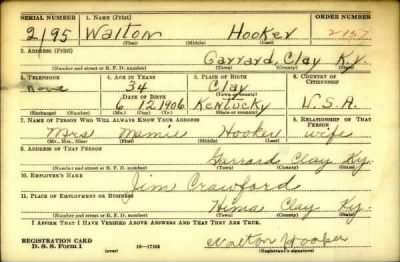 SERIAL NUMBER 1. NAME (Print) ORDER NUMBER
2195 Walton Hooker 2157
(First) (Middle) (Last)
2. ADDRESS (Print)
Garrard, Clay Ky.
(Number and street or R. F. D. number) (Town) (County) (State)
3. TELEPHONE 4. AGE IN YEARS 5. PLACE OF BIRTH 6. COUNTRY OF CITIZENSHIP
None 34 Clay
DATE OF BIRTH (Town or county)
6 12 1906 Kentucky U.S.A.
(Exchange) (Number) (Mo.) (Day) (Yr.) (State or country)
7. NAME OF PERSON WHO WILL ALWAYS KNOW YOUR ADDRESS 8. RELATIONSHIP OF THAT PERSON
Mrs Mamie Hooker wife
(Mr., Mrs., Miss) (First) (Middle) (Last)
9. ADDRESS OF THAT PERSON
Garrard Clay Ky.
(Number and street or R. F. D. number) (Town) (County) (State)
10. EMPLOYER'S NAME
Jim Crawford
11. PLACE OF EMPLOYMENT OR BUSINESS
Hima Clay Ky.
(Number and street or R. F. D. number) (Town) (County) (State)
I AFFIRM THAT I HAVE VERIFIED ABOVE ANSWERS AND THAT THEY ARE TRUE.
REGISTRATION CARD
D. S. S. Form 1 16—17105 Walton Hooper
(Registrant's signature)